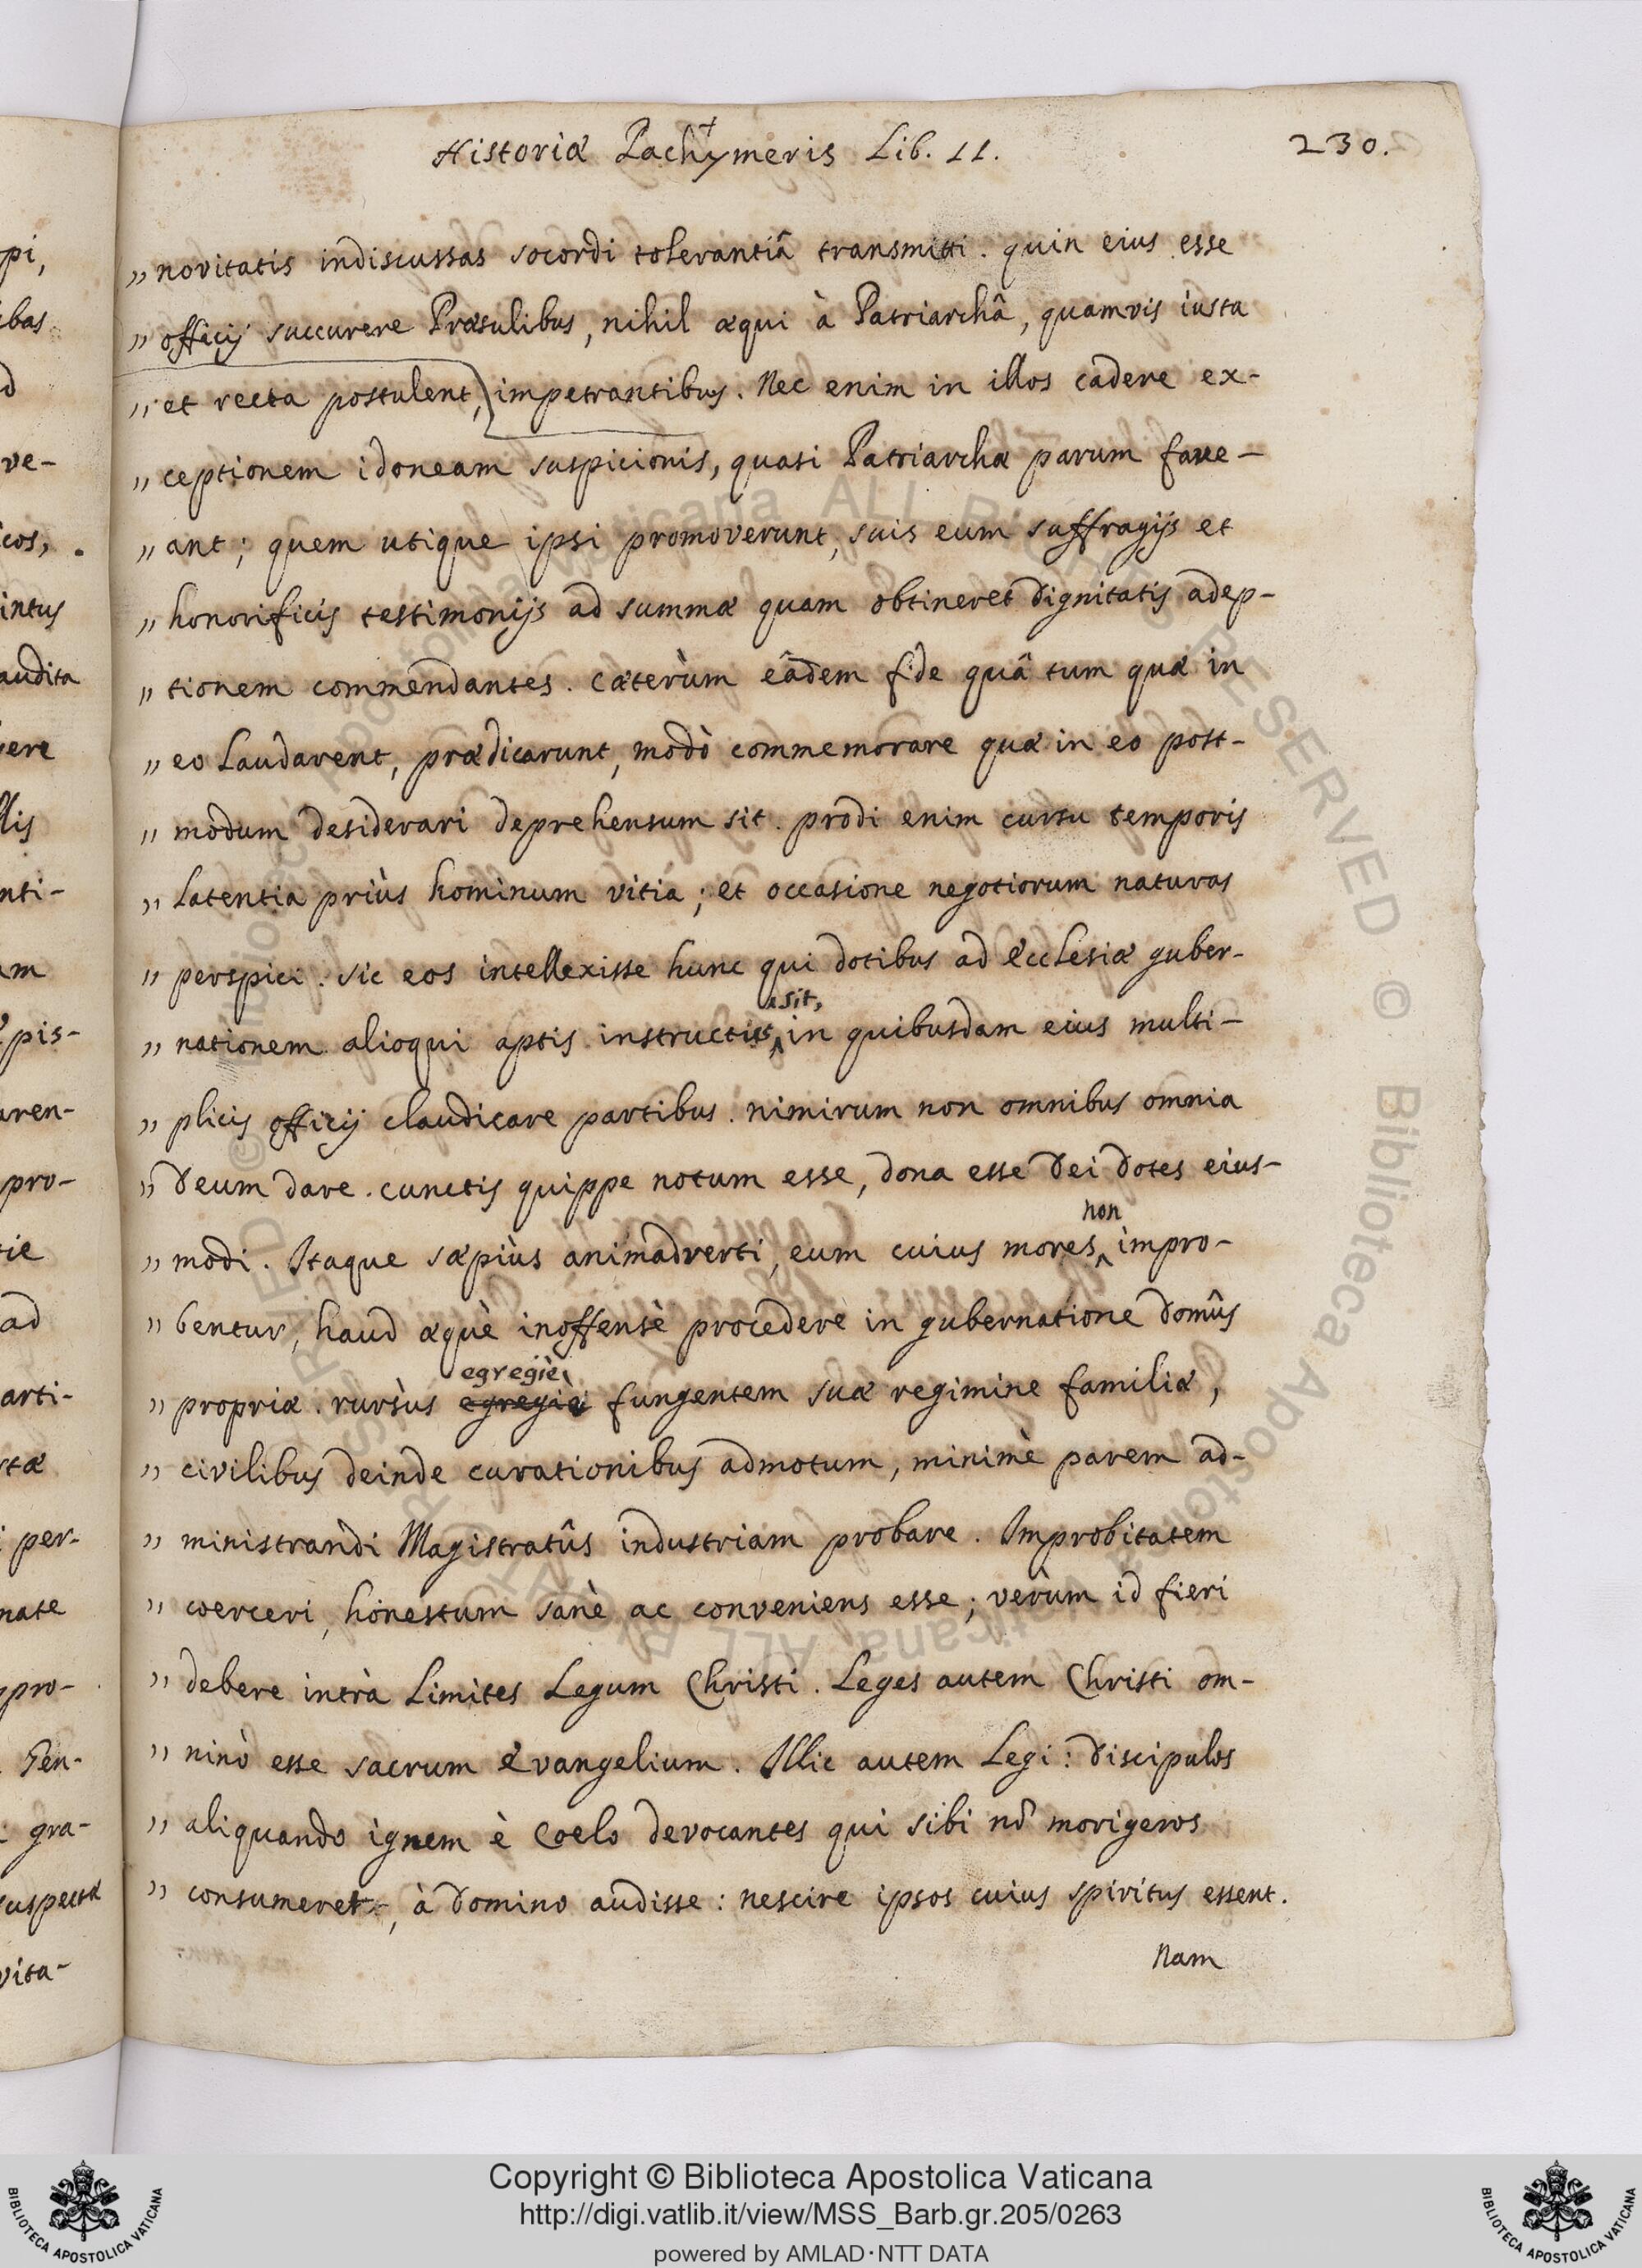 Historiæ Pachymeris Lib. 11.
230.
„ novitatis indiscussas socordi tolerantiâ transmitti. quin eius esse
„ officij succurere Præsulibus, nihil æqui à Patriarchâ, quamvis iusta
„ et recta postulent, impetrantibus. Nec enim in illos cadere ex-
„ ceptionem idoneam suspicionis, quasi Patriarchæ parum fave-
„ ant; quem utique ipsi promoverunt, suis eum suffragijs et
„ honorificis testimonijs ad summæ quam obtineret dignitatis adep-
„ tionem commendantes. Cæterùm eâdem fide quâ tum quæ in
„ eo laudarent, prædicarunt, modò commemorare quæ in eo post-
„ modum desiderari deprehensum sit. prodi enim cursu temporis
„ latentia priùs hominum vitia; et occasione negotiorum naturas
„ perspici. sic eos intellexisse hunc qui dotibus ad Ecclesiæ guber-
sit,
„ nationem alioqui aptis instructus in quibusdam eius multi-
„ plicis officij claudicare partibus. nimirum non omnibus omnia
„ Deum dare. cunctis quippe notum esse, dona esse Dei dotes eius-
non
„ modi. Itaque sæpiùs animadverti, eum cuius mores impro-
„ bentur, haud æquè inoffensè procedere in gubernatione domûs
egregiè
„ propriæ. rursùs egregiè fungentem suæ regimine familiæ,
„ civilibus deinde curationibus admotum, minimè parem ad-
„ ministrandi Magistratûs industriam probare. Improbitatem
„ coerceri, honestum sanè ac conveniens esse; verùm id fieri
„ debere intrà limites Legum Christi. Leges autem Christi om-
„ ninò esse sacrum Evangelium. Illic autem legi: Discipulos
„ aliquando ignem è Coelo devocantes qui sibi nō morigeros
„ consumeret, à Domino audisse: nescire ipsos cuius spiritus essent.
Nam
pi,
bas
d
ve-
cos,
intus
audita
ere
lis
nti-
am
pis-
aren-
pro-
tie
ad
arti-
tæ
per-
nate
pro-
Gen-
gra-
suspectæ
vita-
© Biblioteca Apostolica Vaticana ALL RIGHTS RESERVED
Copyright © Biblioteca Apostolica Vaticana
http://digi.vatlib.it/view/MSS_Barb.gr.205/0263
powered by AMLAD·NTT DATA
BIBLIOTECA APOSTOLICA VATICANA
BIBLIOTECA APOSTOLICA VATICANA